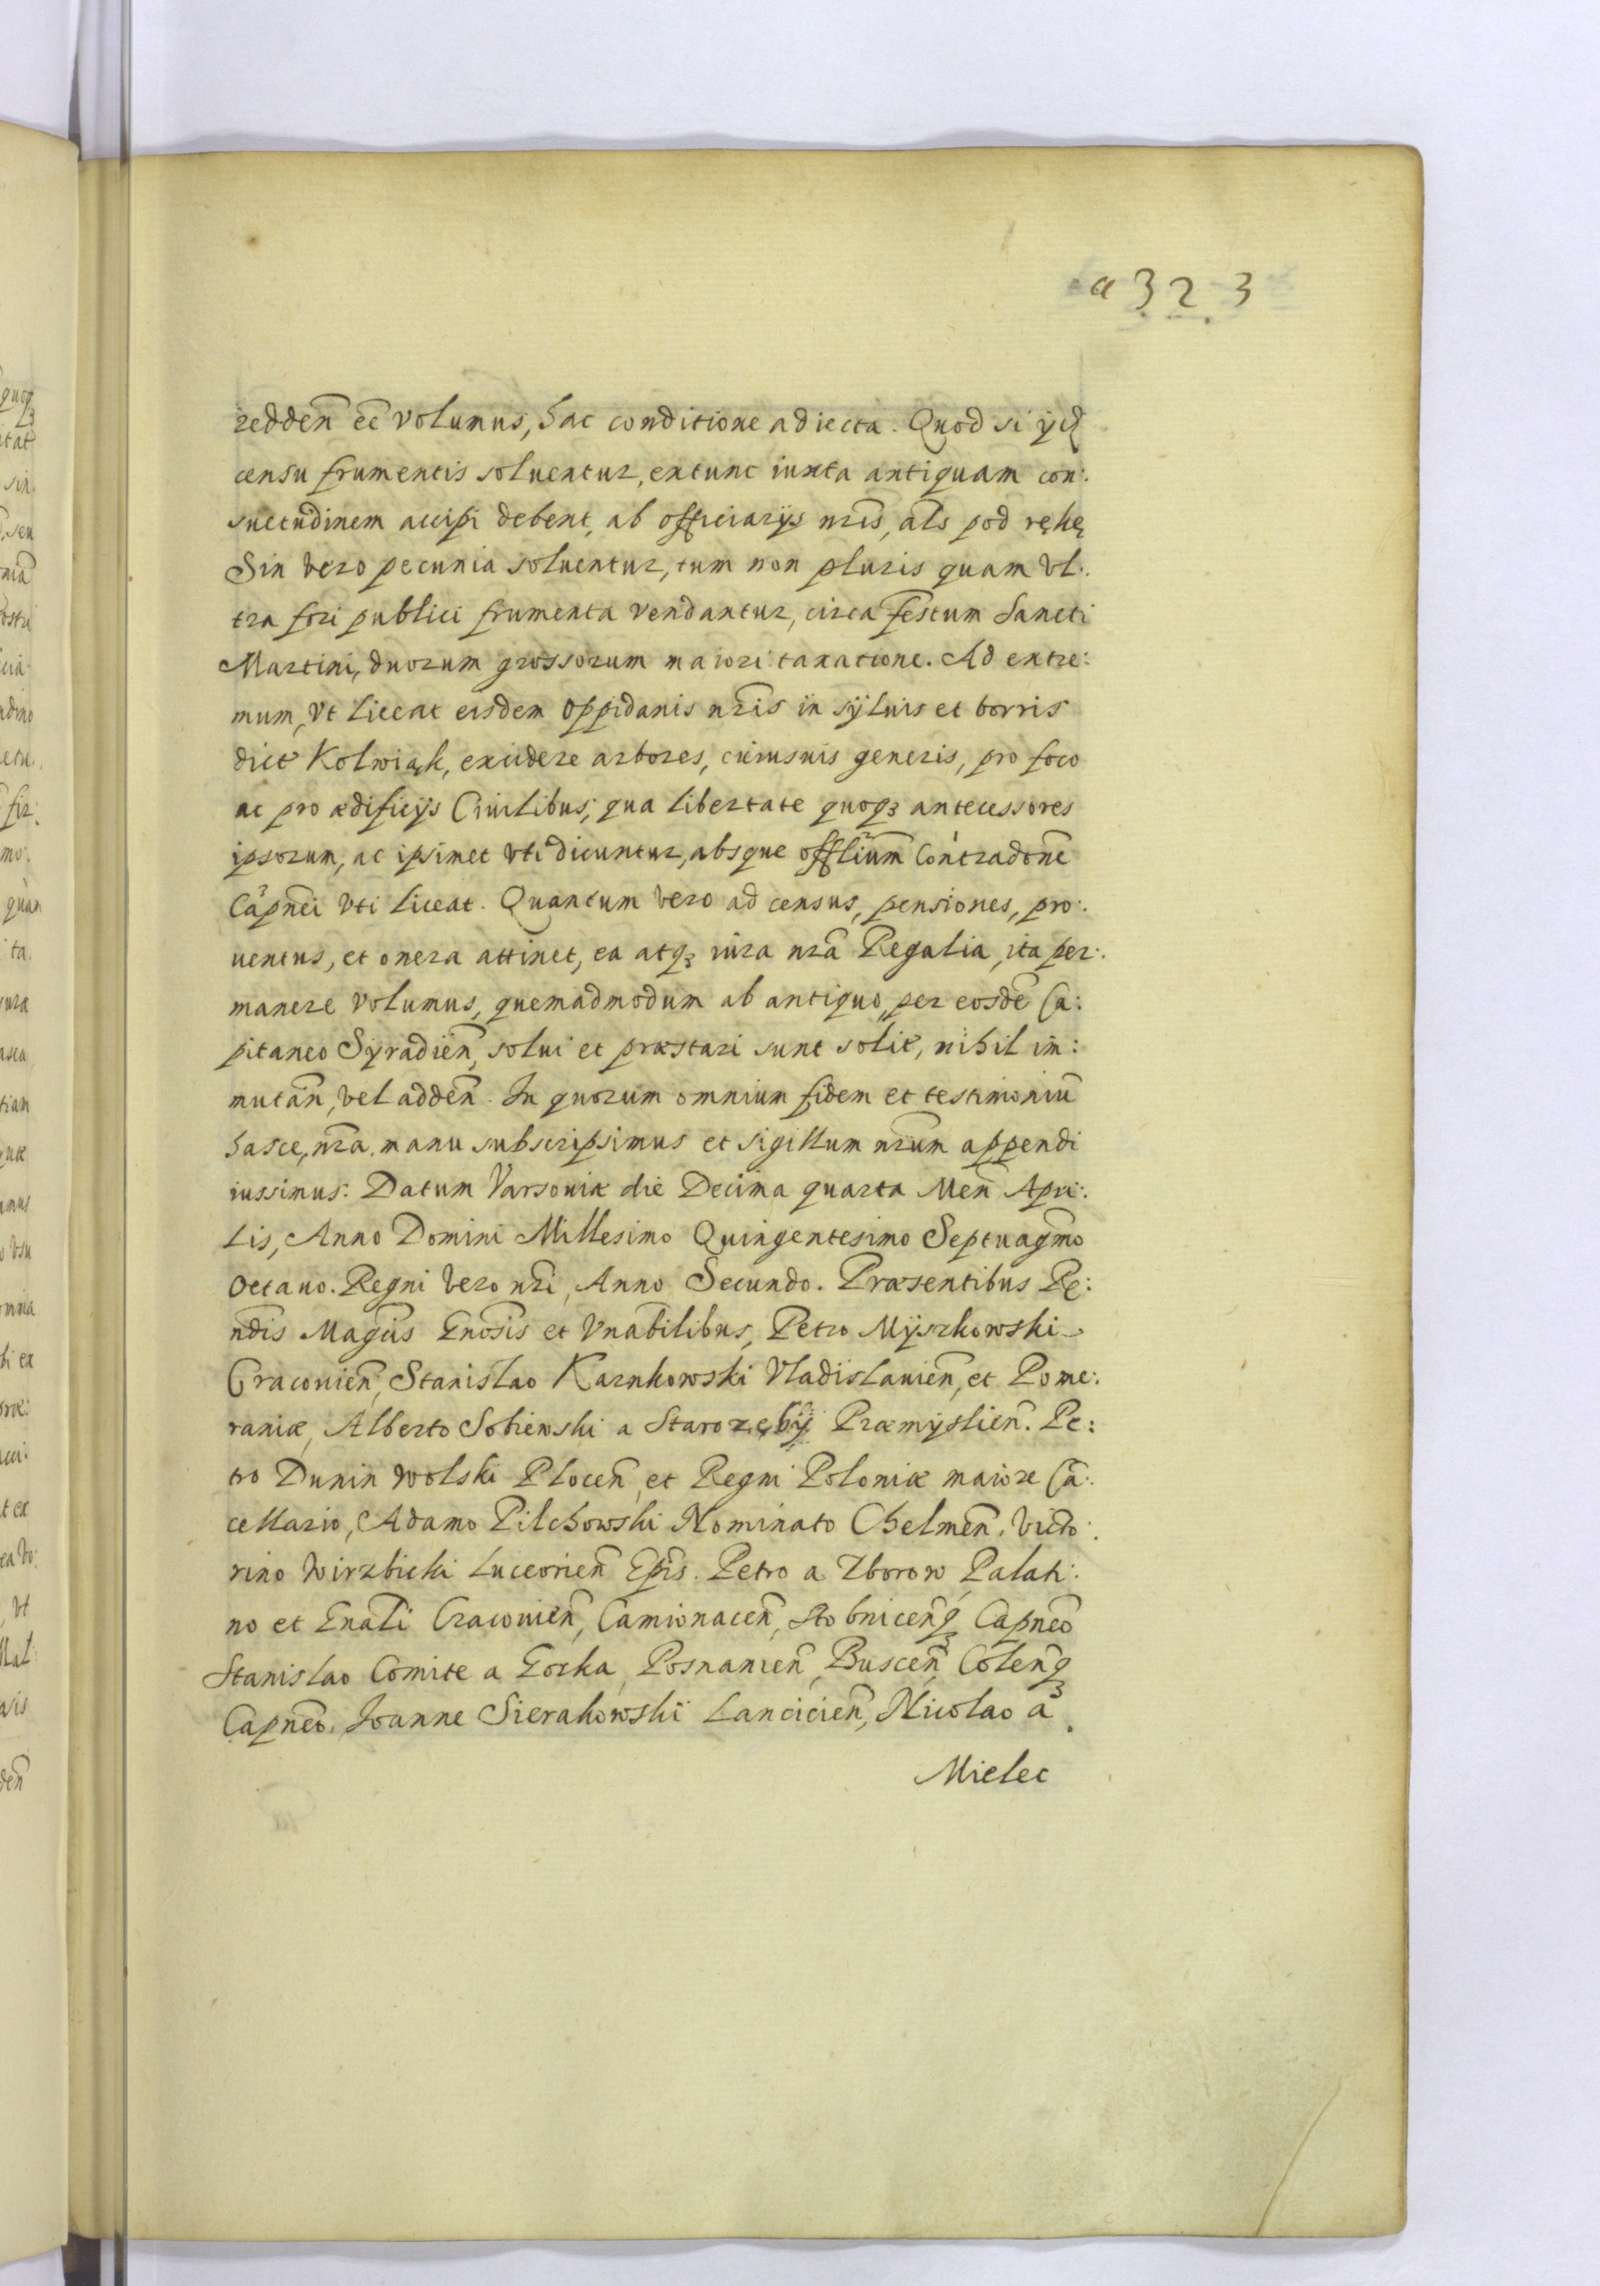 a 323
redden̄ eē volumus, hac conditione adiecta. Quod si ijd
censu frumentis soluentur, extunc iuxta antiquam con:
suetudinem accipi debent, ab officiarijs nr̄is, al̄s pod rękę
Sin vero pecunia soluentur, tum non pluris quam vl:
tra fori publici frumenta vendantur, circa festum Sancti
Martini, duorum grossorum maiori taxatione. Ad extre:
mum, vt liceat eisdem oppidanis nr̄is in syluis et borris
dict Kolwiąk, excidere arbores, cuiusuis generis, pro foco
ac pro ædificijs Ciuilibus, qua libertate quoqꝫ antecessores
ipsorum, ac ipsimet vti dicuntur, absque offlium̄ Contradōne
Capn̄ei vti liceat. Quantum vero ad census, pensiones, pro:
uentus, et onera attinet, ea atqꝫ iura nr̄a Regalia, ita per:
manere volumus, quemadmodum ab antiquo, per eosdē Ca:
pitaneo Syradien̄, solui et præstari sunt solit, nihil im:
mutan̄, vel adden̄. In quorum omnium fidem et testimoniū
hasce, nr̄a manu subscripsimus et sigillum nr̄um appendi
iussimus. Datum Varsouiæ die Decima quarta Men̄ Apri:
lis, Anno Domini Millesimo Quingentesimo Septuagmo
octauo. Regni vero nr̄i, Anno Secundo. Præsentibus Re:
n̄dis Magcis Gnosis et Vnabilibus, Petro Myszkowski
Cracouien̄, Stanislao Karnkowski Vladislauien̄, et Pome:
raniæ, Alberto Sobiewski a Starozęby Præmyslien̄. Pe:
tro Dunin Wolski Plocen̄, et Regni Poloniæ maiore Cā:
cellario, Adamo Pilchowski Nominato Chelmen̄. Victo:
rino Wirzbicki Luceorien̄ Epis. Petro a Zborow, Palati:
no et Gnali Cracouien̄, Camionacen̄, Stobnicen̄qꝫ Capneo
Stanislao Comite a Gorka, Posnanien̄, Buscen̄, Colen̄qꝫ
Capneo. Joanne Sierakowski Lancicien̄, Nicolao a
Mielec